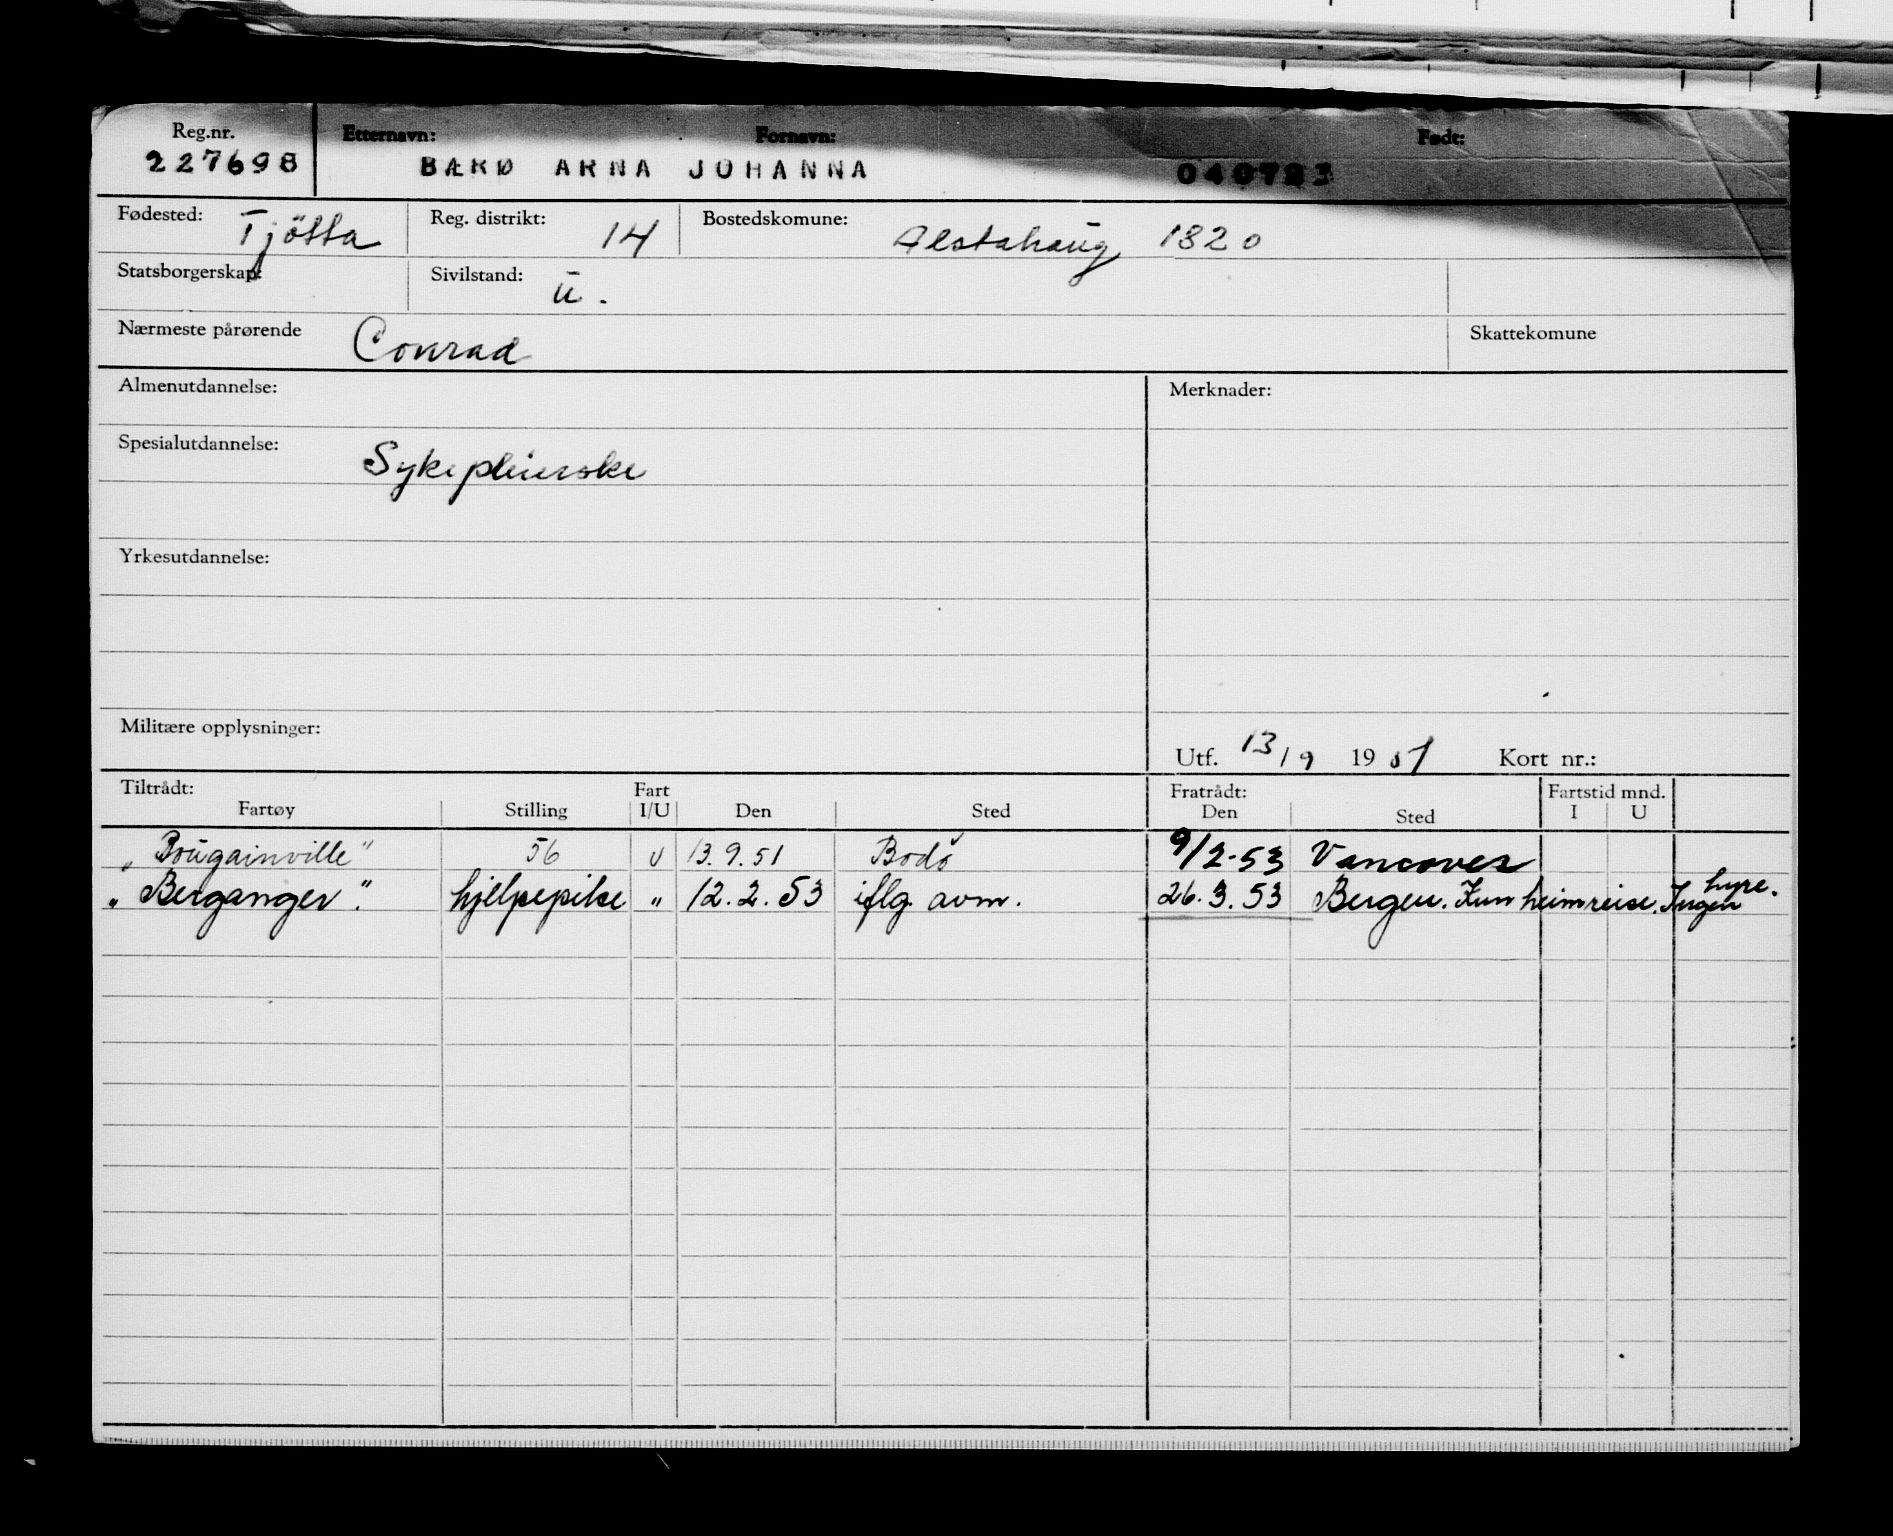 Reg.nr. Etternavn: Fornavn: Født:
227698 BÆRØ ARNA JOHANNA 040723
Fødested: Tjötta Reg. distrikt: 14 Bostedskomune: Alstahaug 1820
Statsborgerskap: Sivilstand: u.
Nærmeste pårørende Conrad Skattekomune
Almenutdannelse: Merknader:
Spesialutdannelse: Sykepleierske
Yrkesutdannelse:
Militære opplysninger:
Utf. 13/9 1951 Kort nr.:
Tiltrådt: Fart Fratrådt: Fartstid mnd.
Fartøy Stilling I/U Den Sted Den Sted I U
"Bougainville" 56 U 13.9.51 Bodö 9/2-53 Vancover
"Berganger". hjelpepike " 12.2.53 iflg. avm. 26.3.53 Bergen. Kun heimreise. Ingen hyre.